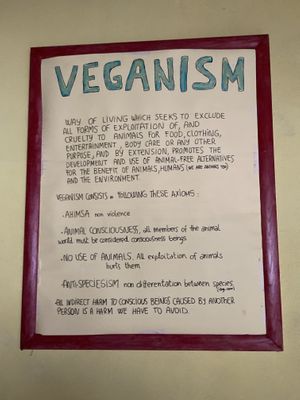 VEGANISM
WAY OF LIVING WHICH SEEKS TO EXCLUDE
ALL FORMS OF EXPLOITATION OF, AND
CRUELTY TO ANIMALS FOR FOOD, CLOTHING,
ENTERTAINMENT, BODY CARE OR ANY OTHER
PURPOSE, AND BY EXTENSION, PROMOTES THE
DEVELOPMENT AND USE OF ANIMAL-FREE ALTERNATIVES
FOR THE BENEFIT OF ANIMALS, HUMANS (WE ARE ANIMALS TOO)
AND THE ENVIRONMENT.
VEGANISM CONSISTS IN FOLLOWING THESE AXIOMS:
-AHIMSA non violence
-ANIMAL CONSCIOUSNESS, all members of the animal
world must be considered consciousness beings
-NO USE OF ANIMALS. All exploitation of animals
hurts them.
-ANTI-SPECIESISM non differentiation between species
ALL INDIRECT HARM TO CONSCIOUS BEINGS CAUSED BY ANOTHER
PERSON IS A HARM WE HAVE TO AVOID.